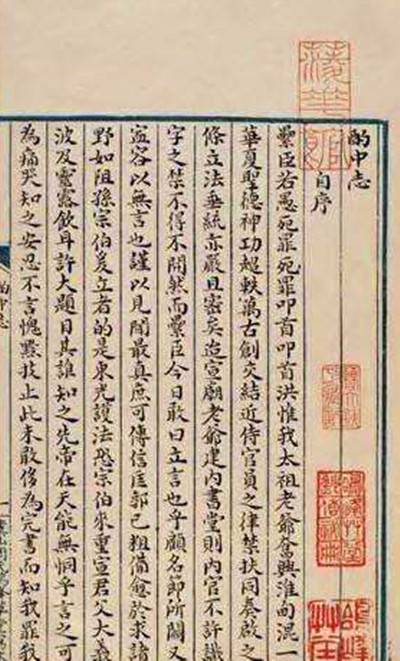 酌中志
自序
纍臣若愚死罪死罪叩首叩首洪惟我太祖老爺奮興淮甸混一
華夏聖德神功超軼萬古創交結近侍官員之律禁扶同奏啟之
條立法垂統亦嚴且密矣迨宣廟老爺建內書堂則內官不許識
字之禁不得不開然而纍臣今日敢曰立言也乎顧名節所關又
寧容以無言也謹以見聞最真庶可傳信匡郭已粗備愈於求諸
野如阻孫宗伯爰立者的是東光護法恐宗伯來重宣君父大義
波及靈露飲耳許大題目其誰知之先帝在天能無恫乎言之可
為痛哭知之安忍不言愧黔技止此未敢侈為完書而知我罪我
酌中志